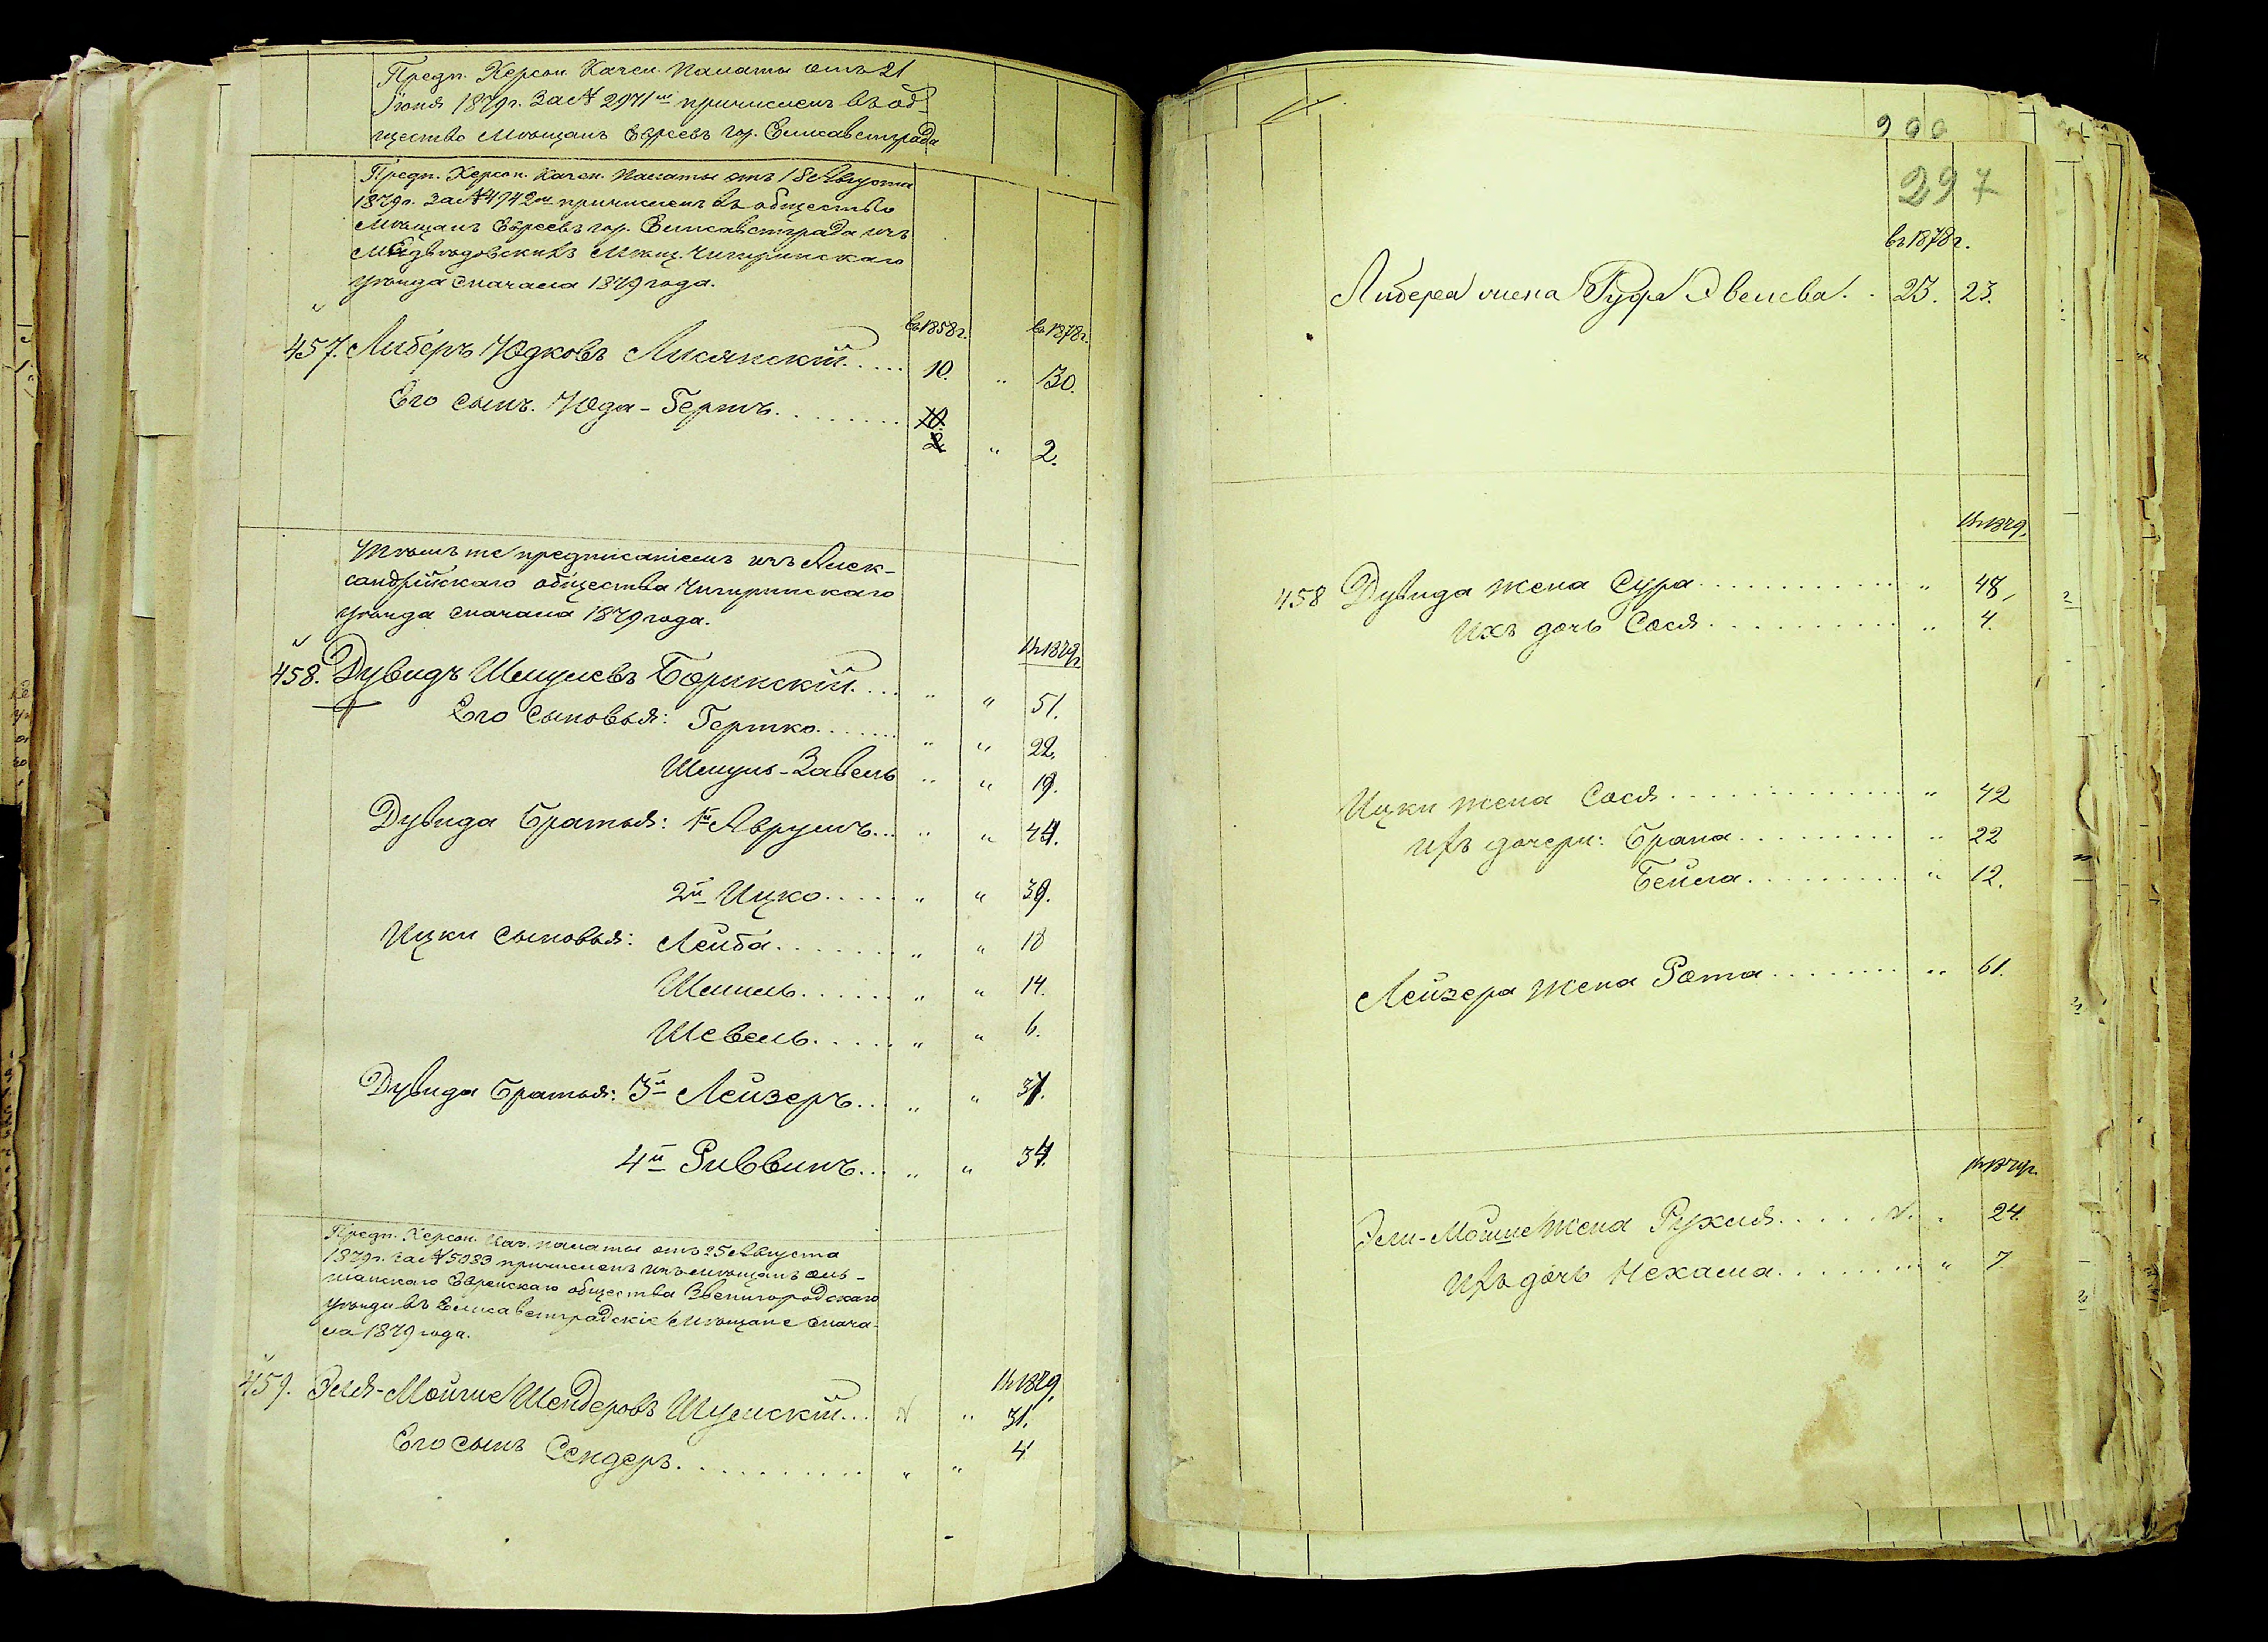 Предп. Херсон. Казен. Палаты отъ 21
Іюня 1879 г. за № 2971 м причисленъ въ об-
щество мѣщанъ Евреевъ гор. Елисаветграда
Предп. Херсон. Казен. Палаты отъ 18 Августа
1879 г. за № 4942 м причисленъ въ общество
мѣщанъ Евреевъ гор. Елисаветграда изъ
Медвѣдовскихъ мѣщ. Чигиринскаго
уѣзда сначала 1879 года.
въ 1858 г. въ 1878 г.
457. Либеръ Юдковъ Лисянскій..... 10. " 30.
Его сынъ. Юда-Гершъ......... 10.
2 " 2.
Тѣмъ же предписаніемъ изъ Алек-
сандрійскаго общества Чигиринскаго
уѣзда сначала 1879 года.
въ 1879 г.
458. Дувидъ Шмулевъ Боринскій.... " " 51.
Его сыновья: Гершко....... " " 22.
Шмуль-Завель " " 19.
Дувида братья: 1й Аврумъ... " " 44.
2й Ицко..... " " 39.
Ицки сыновья: Лейба....... " " 18
Шмиль...... " " 14.
Шевель..... " " 6.
Дувида братья: 3й Лейзеръ... " " 37.
4й Риввинъ... " " 34.
Предп. Херсон. Каз. палаты отъ 25 Августа
1879 г. за № 5033 причисленъ изъ мѣщанъ Оль-
шанскаго Еврейскаго общества Звенигородскаго
уѣзда въ Елисаветградскіе мѣщане снача-
ла 1879 года.
въ 1879.
459. Эля-Мойше Шендеровъ Шумскій... " 31.
Его сынъ Сендеръ........... " " 4
297
въ 1878 г.
Либера жена Руфа Эвелева.. 23. 23.
въ 1879.
458 Дувида жена Сура............ " 48,
Ихъ дочь Сося........... " 4.
Ицки жена Сося............ " 42
Ихъ дочери: Брана......... " 22
Бейла......... " 12.
Лейзера жена Рота........ " 61.
въ 1879 г.
Эли-Мойше жена Рухля..... 24.
Ихъ дочь Нехама........ " 7